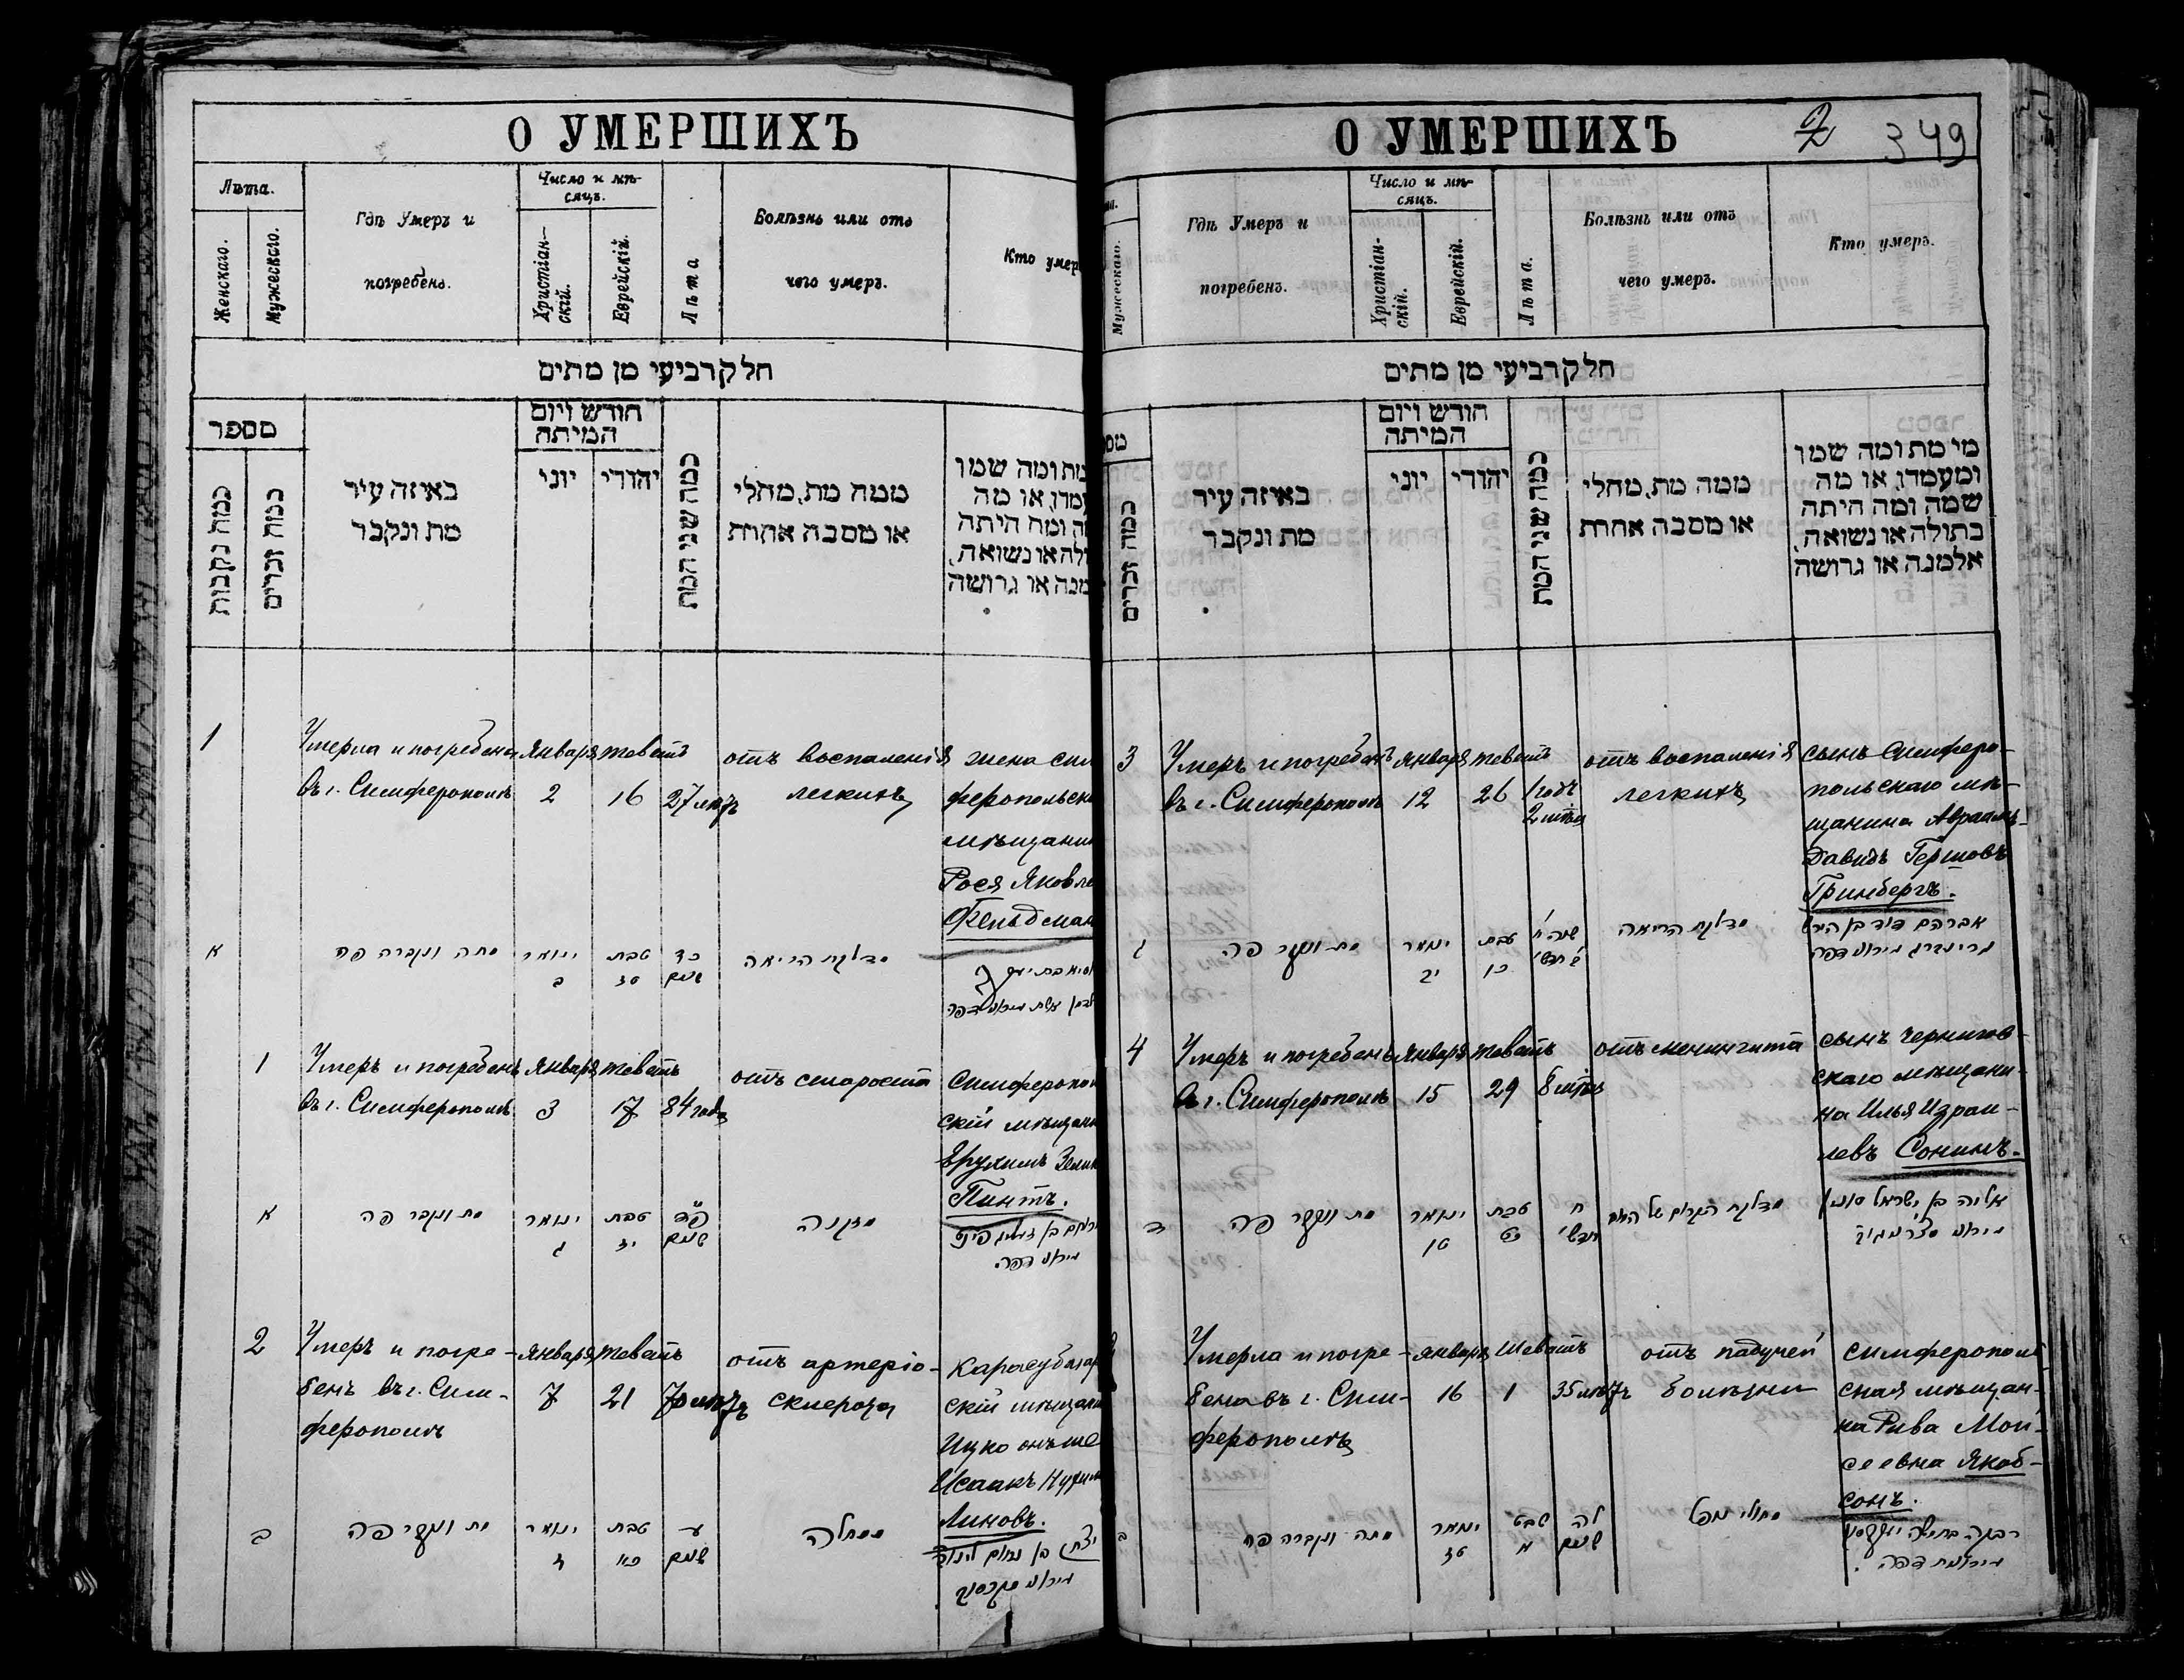 О УМЕРШИХЪ
Лѣта.
Женскаго.
Мужескаго.
Гдѣ Умеръ и
погребенъ.
Число и мѣ-
сяцъ.
Христіан-
скій.
Еврейскій.
Лѣта
Болѣзнь или отъ
чего умеръ.
Кто умер
חלק רביעי מן מתים
מספר
כמה נקבות
כמה זכרים
באיזה עיר
מת ונקבר
חודש ויום
המיתה
יוני
יהודי
כמה שני המת
ממה מת, מחלי
או מסבה אחרת
מת ומה שמו
עמדו, או מה
ה ומה היתה
ולה או נשואה,
מנה או גרושה
1
Умерла и погребена
въ г. Симферополѣ
Января
2
Теветъ
16
27 лѣтъ
отъ воспаленія
легкихъ
жена сим
феропольск
мѣщанин
Рося Яковле
Фельдман
א
מתה ונקברה פה
ינואר
ב
טבת
טז
שנים
מדלקת הריאה
1
Умеръ и погребенъ
въ г. Симферополѣ
Января
3
Теветъ
17
84 года
отъ старости
Симферопол
скій мѣщани
Пинтъ.
א
מת ונקבר פה
ינואר
ג
טבת
יז
פ״ד
שנים
מזקנה
2
Умеръ и погре-
бенъ въ г. Сим-
ферополѣ
Января
7
Теветъ
21
70 лѣтъ
отъ артеріо-
склероза
Карасубазар
скій мѣщани
Ицко онъ же
Исаакъ Нухим
Линовъ.
ב
מת ונקבר פה
ינואר
ז
טבת
כא
ע
שנים
ממחלה
О УМЕРШИХЪ
2
349
на.
Мужескаго.
Гдѣ Умеръ и
погребенъ.
Число и мѣ-
сяцъ.
Христіан-
скій.
Еврейскій.
Лѣта.
Болѣзнь или отъ
чего умеръ.
Кто умеръ.
חלק רביעי מן מתים
מס
כמה זכרים
באיזה עיר
מת ונקבר
חודש ויום
המיתה
יוני
יהודי
כמה שני המת
ממה מת, מחלי
או מסבה אחרת
מי מת ומה שמו
ומעמדו, או מה
שמה ומה היתה
בתולה או נשואה,
אלמנה או גרושה
3
Умеръ и погребенъ
въ г. Симферополѣ
Января
12
Теветъ
26
1 годъ
2 мѣся
отъ воспаленія
легкихъ
сынъ Симферо-
польскаго мѣ-
щанина Авраамъ-
Давидъ Гершовъ
Гринбергъ.
ג
מת ונקבר פה
ינואר
יב
טבת
כו
מדלקת הריאה
אברהם דוד בן הירש
גרינברג
4
Умеръ и погребенъ
въ г. Симферополѣ
Января
15
Теветъ
29
8 мѣся
отъ менингита
сынъ Чернигов-
скаго мѣщани-
на Илья Израи-
левъ Сонинъ.
ד
מת ונקבר פה
ינואר
טו
טבת
כט
ח
חדשי
אליה בן ישראל סונין
Умерла и погре-
бена въ г. Сим-
ферополѣ
Января
16
Шеватъ
1
35 лѣтъ
отъ падучей
болѣзни
Симферополь
ская мѣщан-
ка Рива Мои-
сеевна Якоб-
сонъ.
ב
מתה ונקברה פה
ינואר
טז
שבט
א
לה
שנים